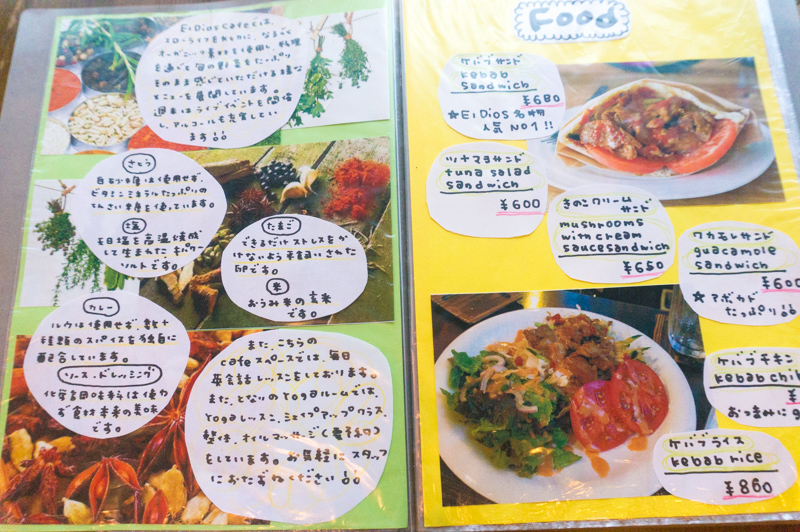 El Dios cafeでは、
スローライフをモットーに、なるべく
オーガニック素材を使用し、料理
を通じて旬の野菜をたっぷり
そのまま感じていただける様な
メニューを展開しています。
週末はライブイベントを開催
し、アルコールも充実してい
ます!!
さとう
白砂糖は使用せず、
ビタミンミネラルたっぷりの
てんさい糖を使っています。
塩
天日塩を高温焼成
して生まれたパワー
ソルトです。
たまご
できるだけストレスをか
けないよう平飼いされた
卵です。
米
おうみ米の玄米
です。
カレー
ルウは使用せず、数十
種類のスパイスを独自に
配合しています。
ソース・ドレッシング
化学調味料は使わ
ず食材本来の美味
です。
また、こちらの
cafeスペースでは、毎日
英会話レッスンをしております。
また、となりのYogaルームでは、
Yogaレッスン、シェイプアップクラス、
整体、オイルマッサージ
をしています。お気軽にスタッフ
におたずねください!!
Food
ケバブサンド
kebab
sandwich
¥680
★El Dios名物
人気No1!!
ツナマヨサンド
tuna salad
sandwich
¥600
きのこクリーム
サンド
mushrooms
with cream
sauce sandwich
¥650
ワカモレサンド
guacamole
sandwich
¥600
★アボカド
たっぷり!!
ケバブチキン
kebab chi
¥
おつまみに
ケバブライス
kebab rice
¥860